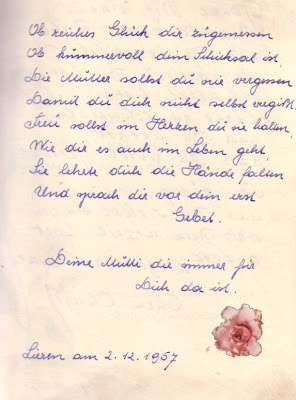 Ob reiches Glück dir zugemessen
Ob kummervoll dein Schicksal ist,
Die Mutter sollst du nie vergessen
Damit du dich nicht selbst vergißt,
Treu sollst im Herzen du sie halten,
Wie dir es auch im Leben geht,
Sie lehrte dich die Hände falten
Und sprach dir vor dein erst
Gebet.
Deine Mutti die immer für
Dich da ist.
Liezen am 2.12.1957